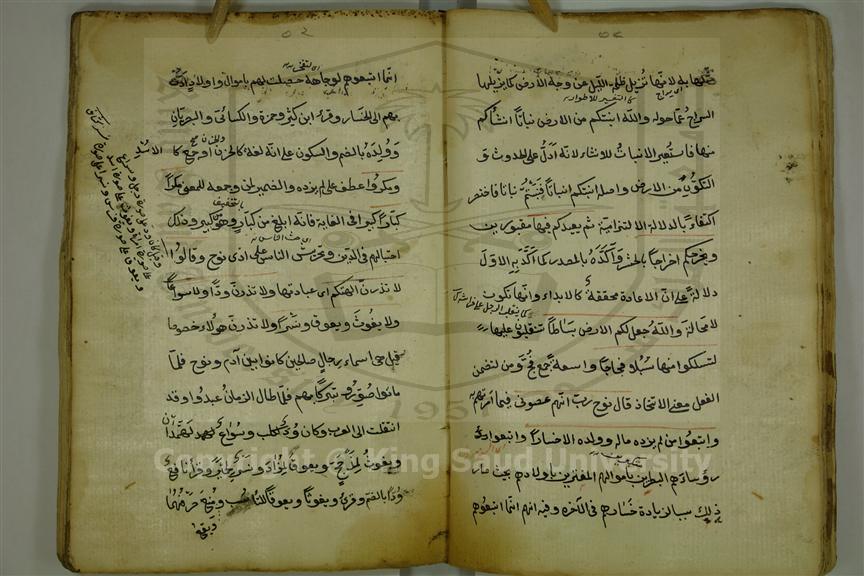 لانها تزيل ظلمة الليل عن وجه الأرض كما يزيلها
السراج عما حوله والله انبتكم من الارض نباتا انشأكم
منها فاستعير الانبات للانشاء لانه ادل على الحدوث و
التكون من الارض واصله انبتكم انباتا فنبتم نباتا فاختصر
اكتفاء بالدلالة الالتزامية ثم يعيدكم فيها مقبورين
ويخرجكم اخراجا بالحشر واكده بالمصدر كما اكد به الاول
دلالة على ان الاعادة محققة كالابداء وانها تكون
لا محالة والله جعل لكم الارض بساطا تتقلبون عليها
لتسلكوا منها سبلا فجاجا واسعة جمع فج ومن لتضمن
الفعل معنى الاتخاذ قال نوح رب انهم عصوني فيما امرتهم به
واتبعوا من لم يزده ماله وولده الا خسارا واتبعوا
رؤساءهم البطرين باموالهم المغترين باولادهم بحيث صار
ذلك سببا لزيادة خسارهم في الآخرة وفيه انهم انما اتبعوهم
انما اتبعوهم لوجاهة حصلت لهم باموال واولاد ادت
بهم الى الخسار وقرأ ابن كثير وحمزة والكسائي والبصريان
وولده بالضم والسكون على انه لغة كالحزن او جمع كالاسد
ومكروا عطف على لم يزده والضمير لمن وجمعه للمعنى مكرا
كبارا كبيرا في الغاية فانه ابلغ من كبار وهو من كبير وذلك
احتيالهم في الدين وتحريش الناس على اذى نوح وقالوا
لا تذرن آلهتكم اي عبادتها ولا تذرن ودا ولا سواعا
ولا يغوث ويعوق ونسرا ولا تذرن هؤلاء خصوصا
قيل هي اسماء رجال صالحين كانوا بين آدم ونوح فلما
ماتوا صوروا تبركا بهم فلما طال الزمان عبدوا وقد
انتقلت الى العرب وكان ود لكلب وسواع لهمدان
ويغوث لمذحج ويعوق لمراد ونسر لحمير وقرأ نافع
ودا بالضم وقرئ يغوثا ويعوقا للتناسب ومنع صرفهما
Copyright © King Saud University
1957